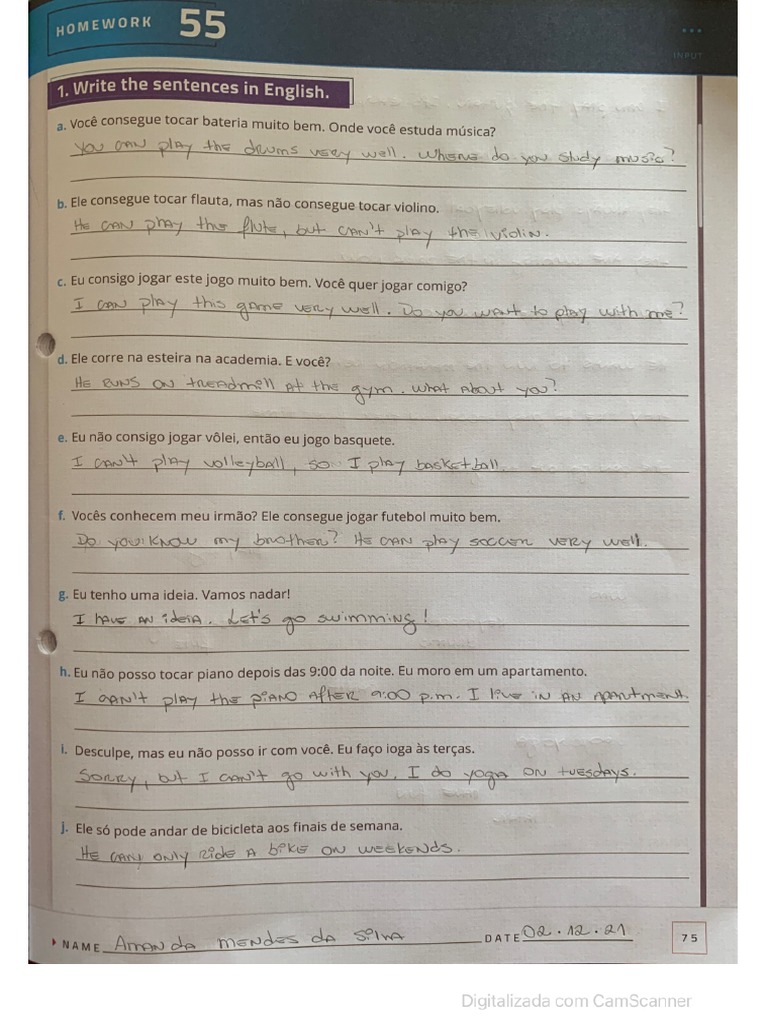 HOMEWORK 55
INPUT
1. Write the sentences in English.
a. Você consegue tocar bateria muito bem. Onde você estuda música?
You can play the drums very well. Where do you study music?
b. Ele consegue tocar flauta, mas não consegue tocar violino.
He can play the flute, but can't play the violin.
c. Eu consigo jogar este jogo muito bem. Você quer jogar comigo?
I can play this game very well. Do you want to play with me?
d. Ele corre na esteira na academia. E você?
He runs on treadmill at the gym. What about you?
e. Eu não consigo jogar vôlei, então eu jogo basquete.
I can't play volleyball, so I play basketball.
f. Vocês conhecem meu irmão? Ele consegue jogar futebol muito bem.
Do you know my brother? He can play soccer very well.
g. Eu tenho uma ideia. Vamos nadar!
I have an ideia. Let's go swimming!
h. Eu não posso tocar piano depois das 9:00 da noite. Eu moro em um apartamento.
I can't play the piano after 9:00 p.m. I live in an apartment.
i. Desculpe, mas eu não posso ir com você. Eu faço ioga às terças.
Sorry, but I can't go with you. I do yoga on tuesdays.
j. Ele só pode andar de bicicleta aos finais de semana.
He can only ride a bike on weekends.
NAME Amanda Mendes da Silva DATE 02.12.21 75
Digitalizada com CamScanner